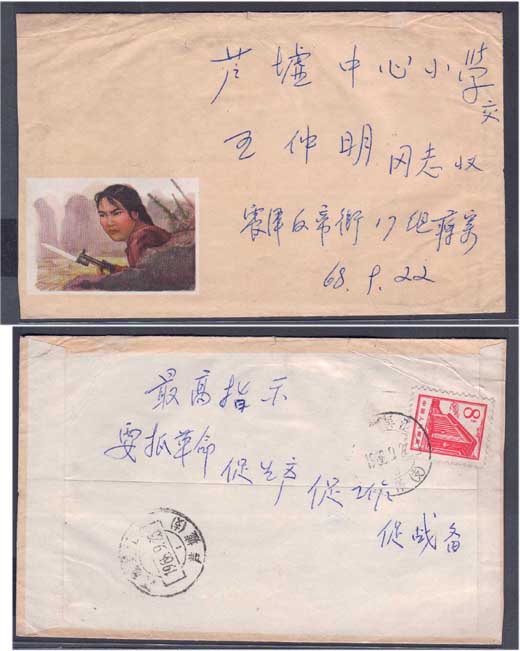 芦墟中心小学交
王仲明同志收
震泽反帝街17组薛寄
68.9.22
最高指示
要抓革命
促生产 促工作
促战备
8